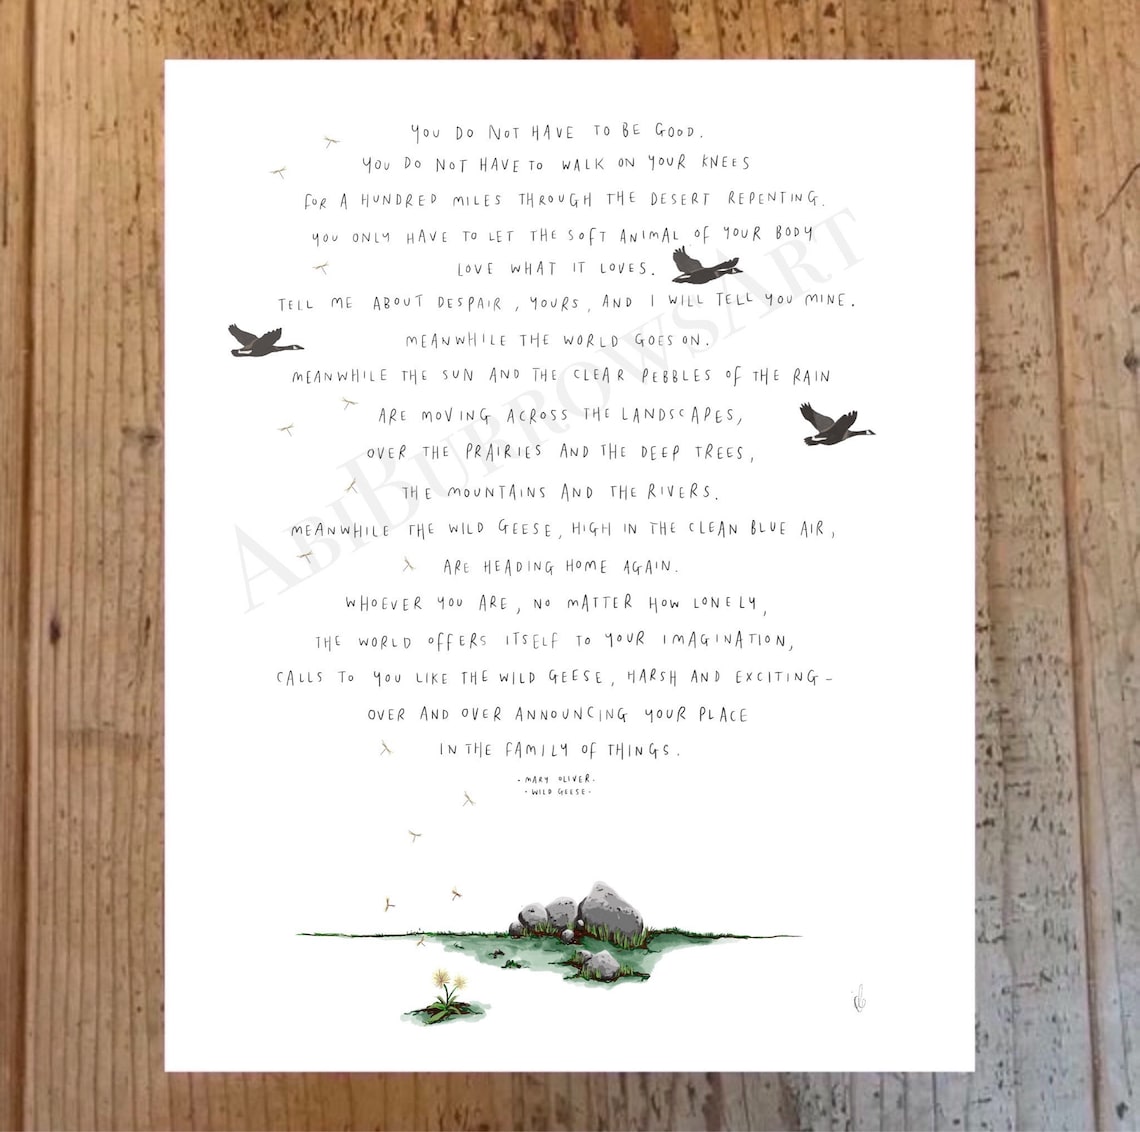 YOU DO NOT HAVE TO BE GOOD.
YOU DO NOT HAVE TO WALK ON YOUR KNEES
FOR A HUNDRED MILES THROUGH THE DESERT REPENTING.
YOU ONLY HAVE TO LET THE SOFT ANIMAL OF YOUR BODY
LOVE WHAT IT LOVES.
TELL ME ABOUT DESPAIR, YOURS, AND I WILL TELL YOU MINE.
MEANWHILE THE WORLD GOES ON.
MEANWHILE THE SUN AND THE CLEAR PEBBLES OF THE RAIN
ARE MOVING ACROSS THE LANDSCAPES,
OVER THE PRAIRIES AND THE DEEP TREES,
THE MOUNTAINS AND THE RIVERS.
MEANWHILE THE WILD GEESE, HIGH IN THE CLEAN BLUE AIR,
ARE HEADING HOME AGAIN.
WHOEVER YOU ARE, NO MATTER HOW LONELY,
THE WORLD OFFERS ITSELF TO YOUR IMAGINATION,
CALLS TO YOU LIKE THE WILD GEESE, HARSH AND EXCITING -
OVER AND OVER ANNOUNCING YOUR PLACE
IN THE FAMILY OF THINGS.
· MARY OLIVER.
· WILD GEESE ·
ABIBURROWSART